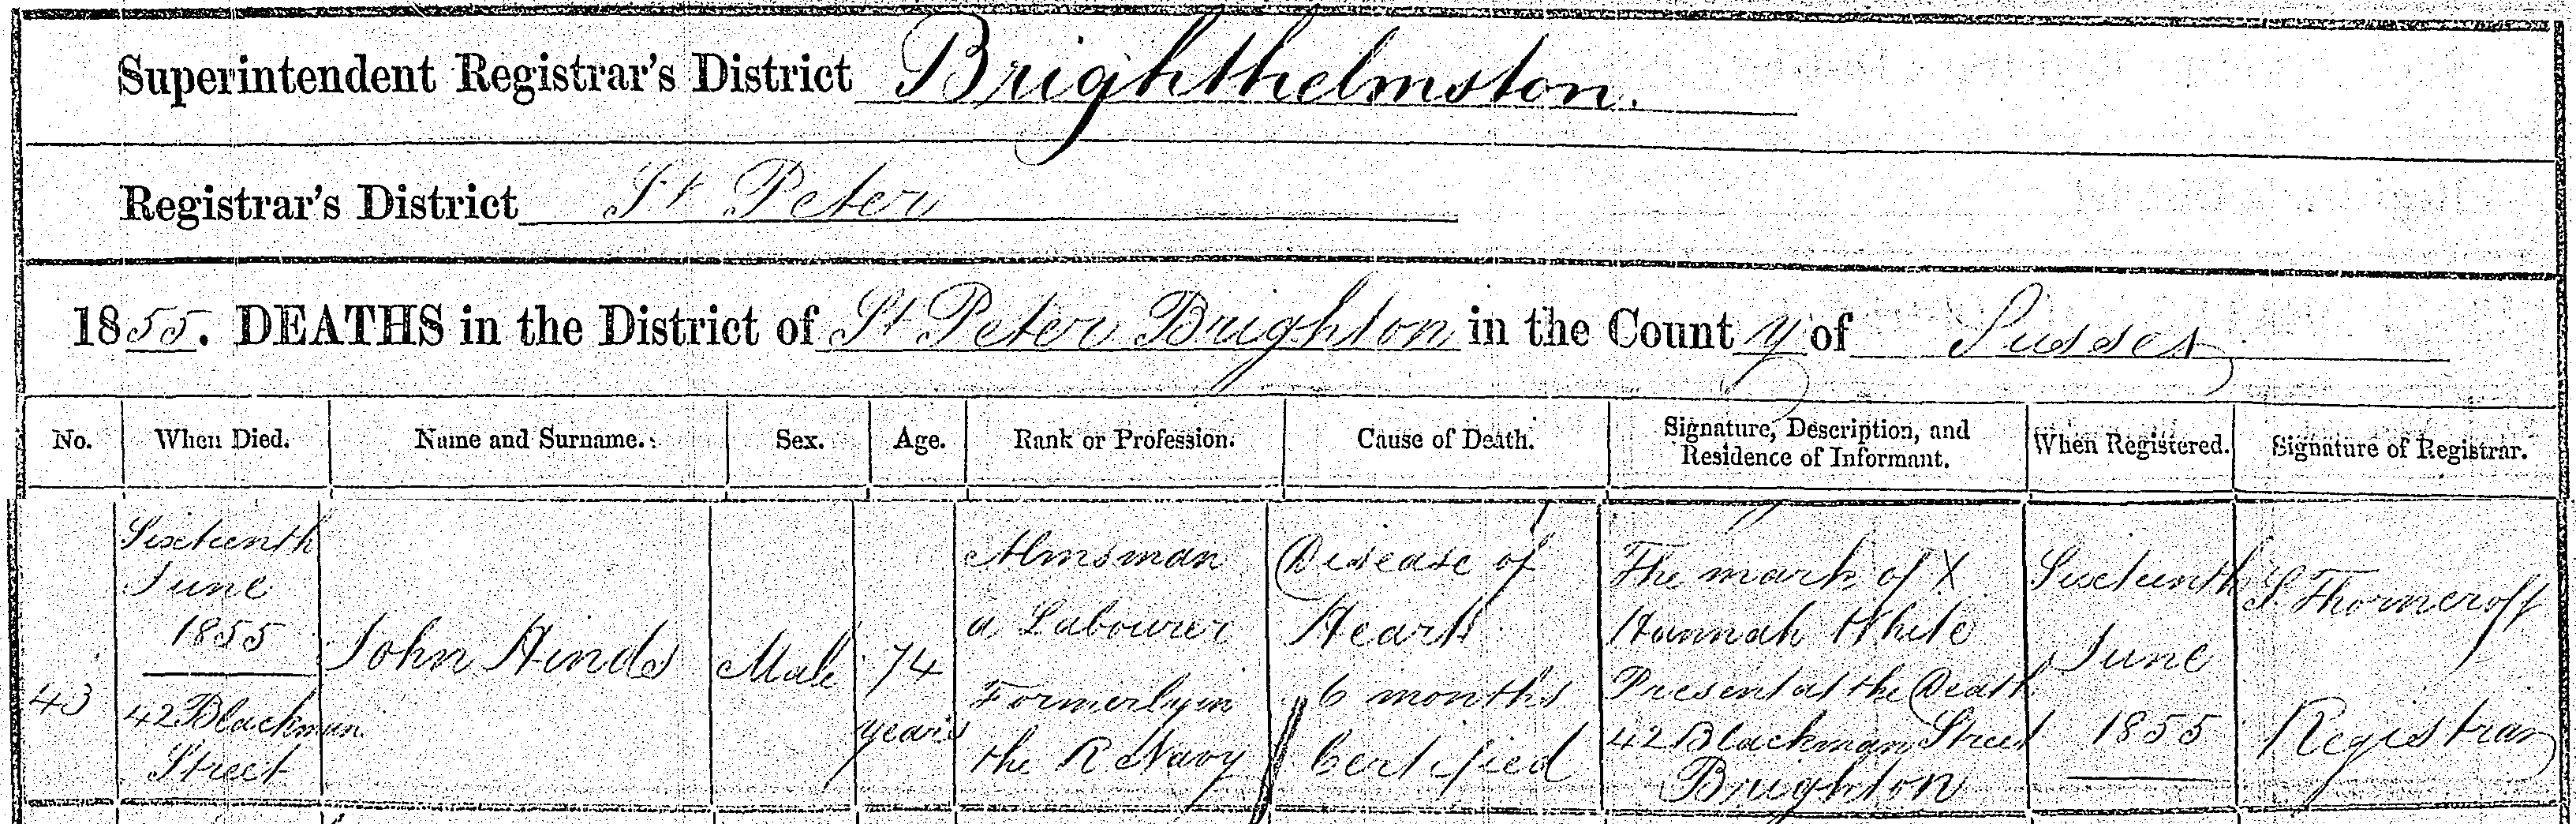 Superintendent Registrar's District Brighthelmston.
Registrar's District St Peter
1855. DEATHS in the District of St Peter Brighton in the County of Sussex
No.
When Died.
Name and Surname.
Sex.
Age.
Rank or Profession.
Cause of Death.
Signature, Description, and
Residence of Informant.
When Registered.
Signature of Registrar.
43
Sixteenth
June
1855
42 Blackman
Street
John Hinds
Male
74
years
Almsman
a Labourer
Formerly in
the R Navy
Disease of
Heart
6 months
Certified
The mark of X
Hannah White
Present at the Death
42 Blackman Street
Brighton
Sixteenth
June
1855
S. Thorncroft
Registrar